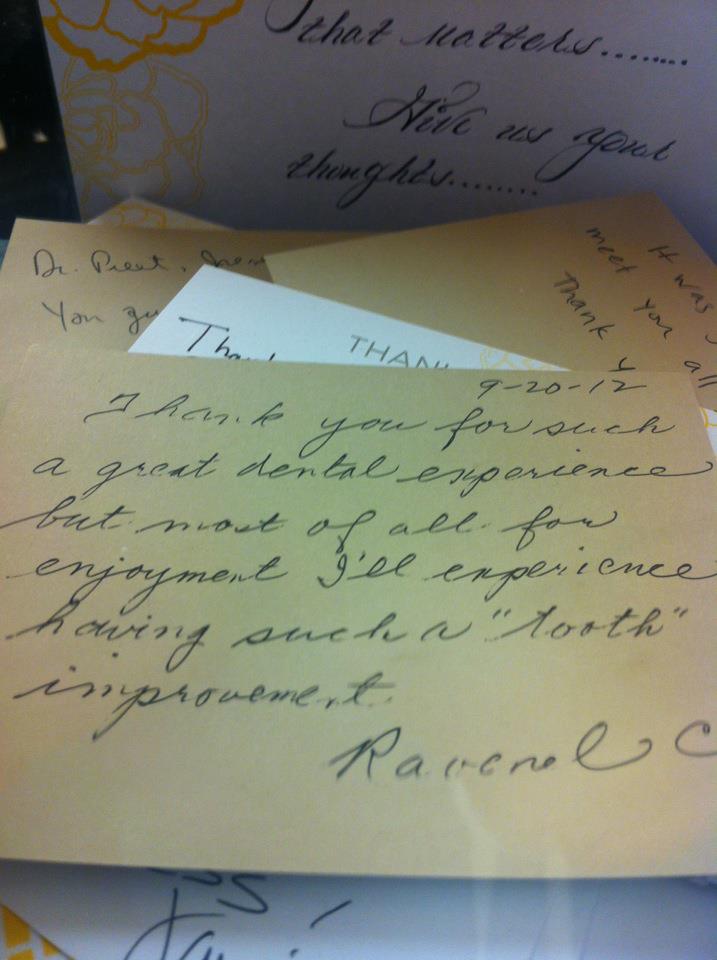 that matters........
Give us your
thoughts........
Dr. Preet,
You
It was
meet you
Thank
Thank
THAN
9-20-12
Thank you for such
a great dental experience
but most of all for
enjoyment I'll experience
having such a "tooth"
improvement.
Ravenel C